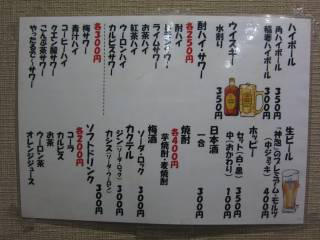 ハイボール
角ハイボール 300円
稲妻ハイボール 400円
ウイスキー
水割り 350円
酎ハイ・サワー
各250円
酎ハイ
レモンサワー
ライムサワー
お茶ハイ
紅茶ハイ
ウーロンハイ
カルピスサワー
各300円
梅サワー
青汁ハイ
コーヒーハイ
ウエン酸サワー
こんぶ茶サワー
生ビール
「神泡」のプレミアム・モルツ
(中ジョッキ) 400円
ホッピー
セット(白・黒) 350円
中(おかわり) 100円
日本酒
一合 300円
焼酎
各400円
芋焼酎・麦焼酎
梅酒
ソーダ・ロック 300円
カクテル
ジン(ソーダ・ロック) 300円
カシス(ソーダ・ウーロン) 300円
ソフトドリンク
各200円
コーラ
カルピス
お茶
ウーロン茶
オレンジジュース